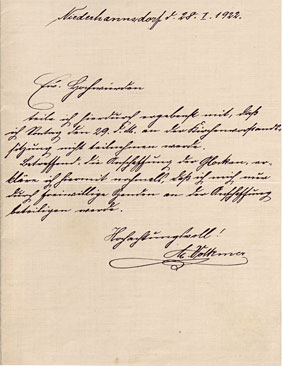 Niederhannsdorf d. 28. I. 1922.
Ew. Hochwürden
teile ich hierdurch ergebenst mit, daß
ich Sonntag den 29. d. M. an der Kirchenvorstands-
sitzung nicht teilnehmen werde.
Betreffend die Anschaffung der Glocken, er-
kläre ich hiermit nochmals, daß ich mich nur
durch freiwillige Spenden an der Anschaffung
beteiligen werde.
Hochachtungsvoll!
Volkmer